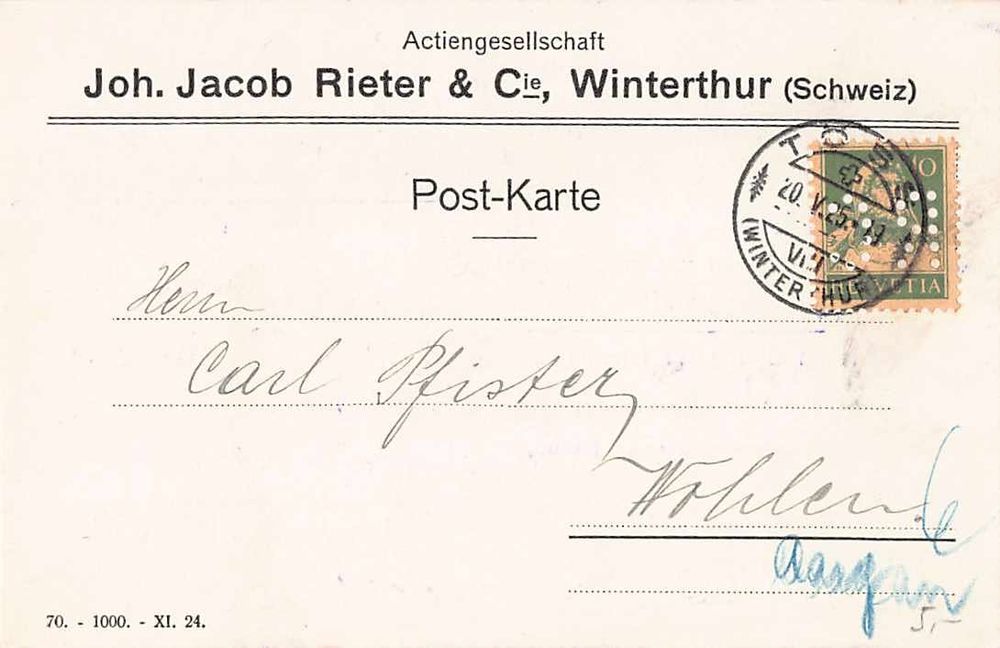 Actiengesellschaft
Joh. Jacob Rieter & Cie, Winterthur (Schweiz)
Post-Karte
TÖSS
20. V. 25.
(WINTERTHUR)
10
HELVETIA
Herrn
Carl Pfister,
Wohlen.
Aargau
5,-
70. - 1000. - XI. 24.